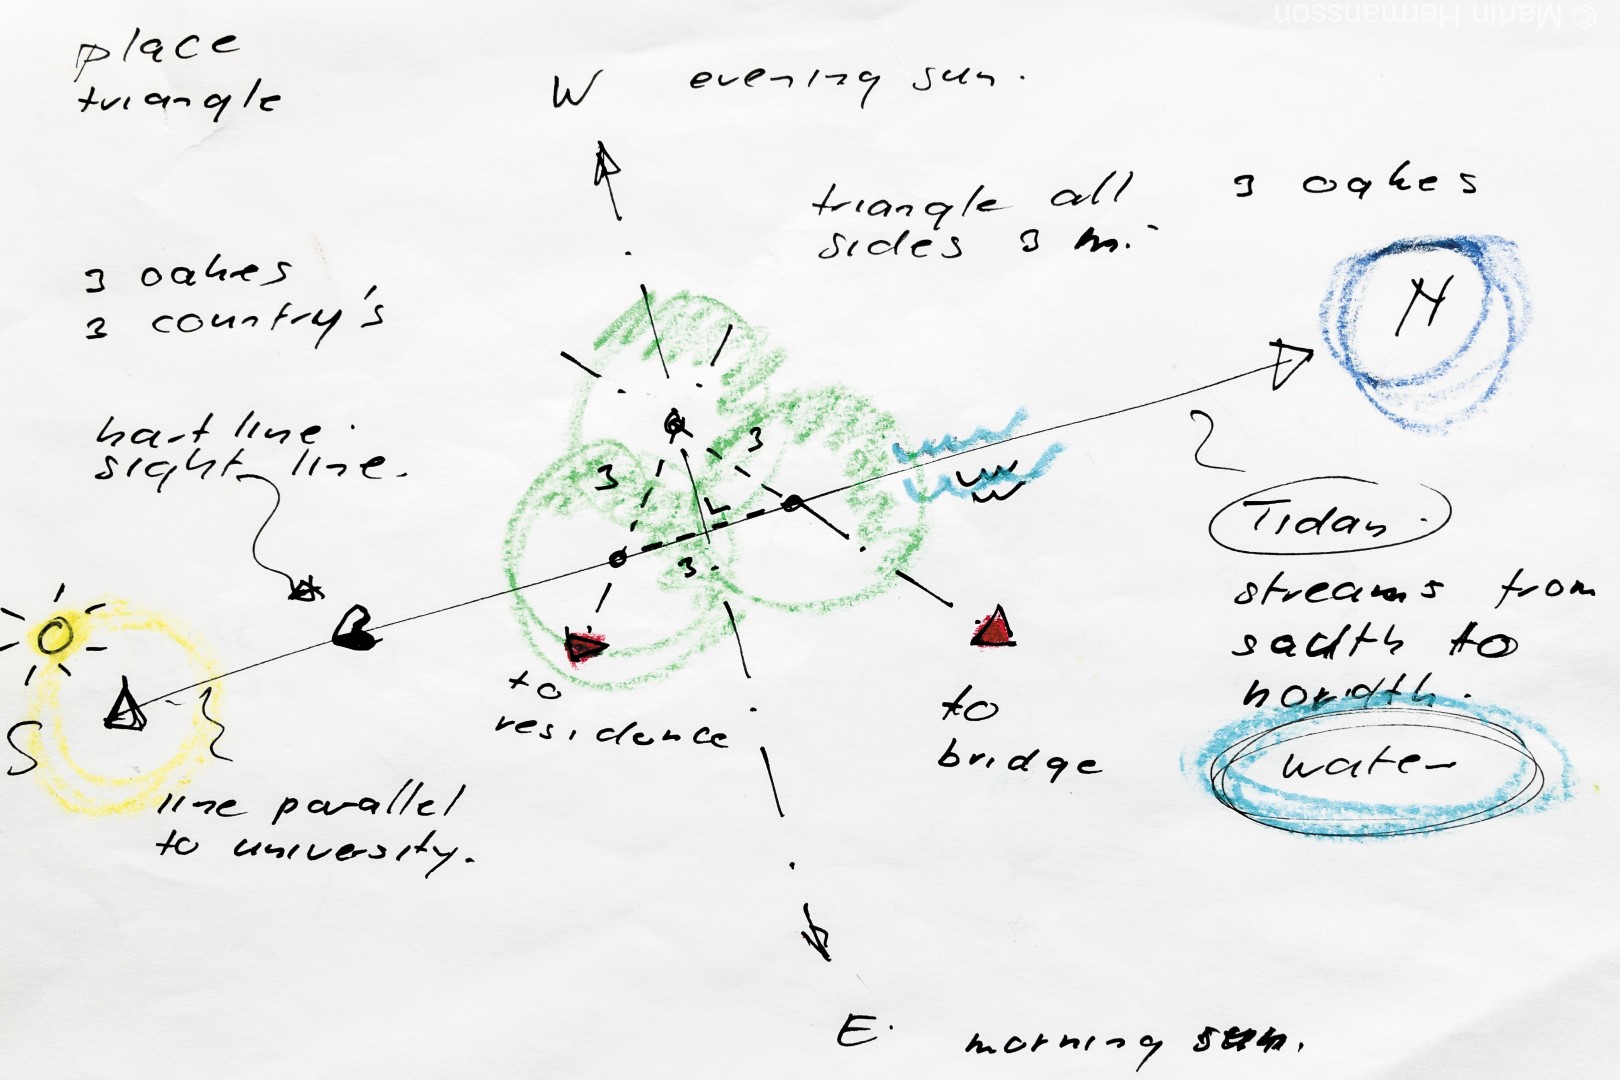 © Martin Hermansson
place
triangle
W evening sun.
triangle all
sides 3 m.
3 oakes
N
3 oakes
3 country's
hart line
sight line.
3
3
3.
Tidan.
streams from
south to
nordth.
water
S
to
residence
to
bridge
line parallel
to university.
E. morning sun.